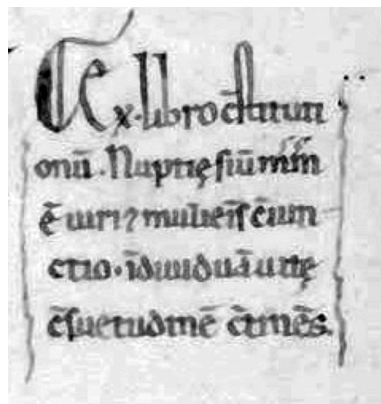 Ex libro c̄stituti
onū . Nuptię siū m̄im
ē uiri ⁊ mulieris c̄iun
ctio · īdiuiduā uitę
c̄suetudinē c̄tinēs.